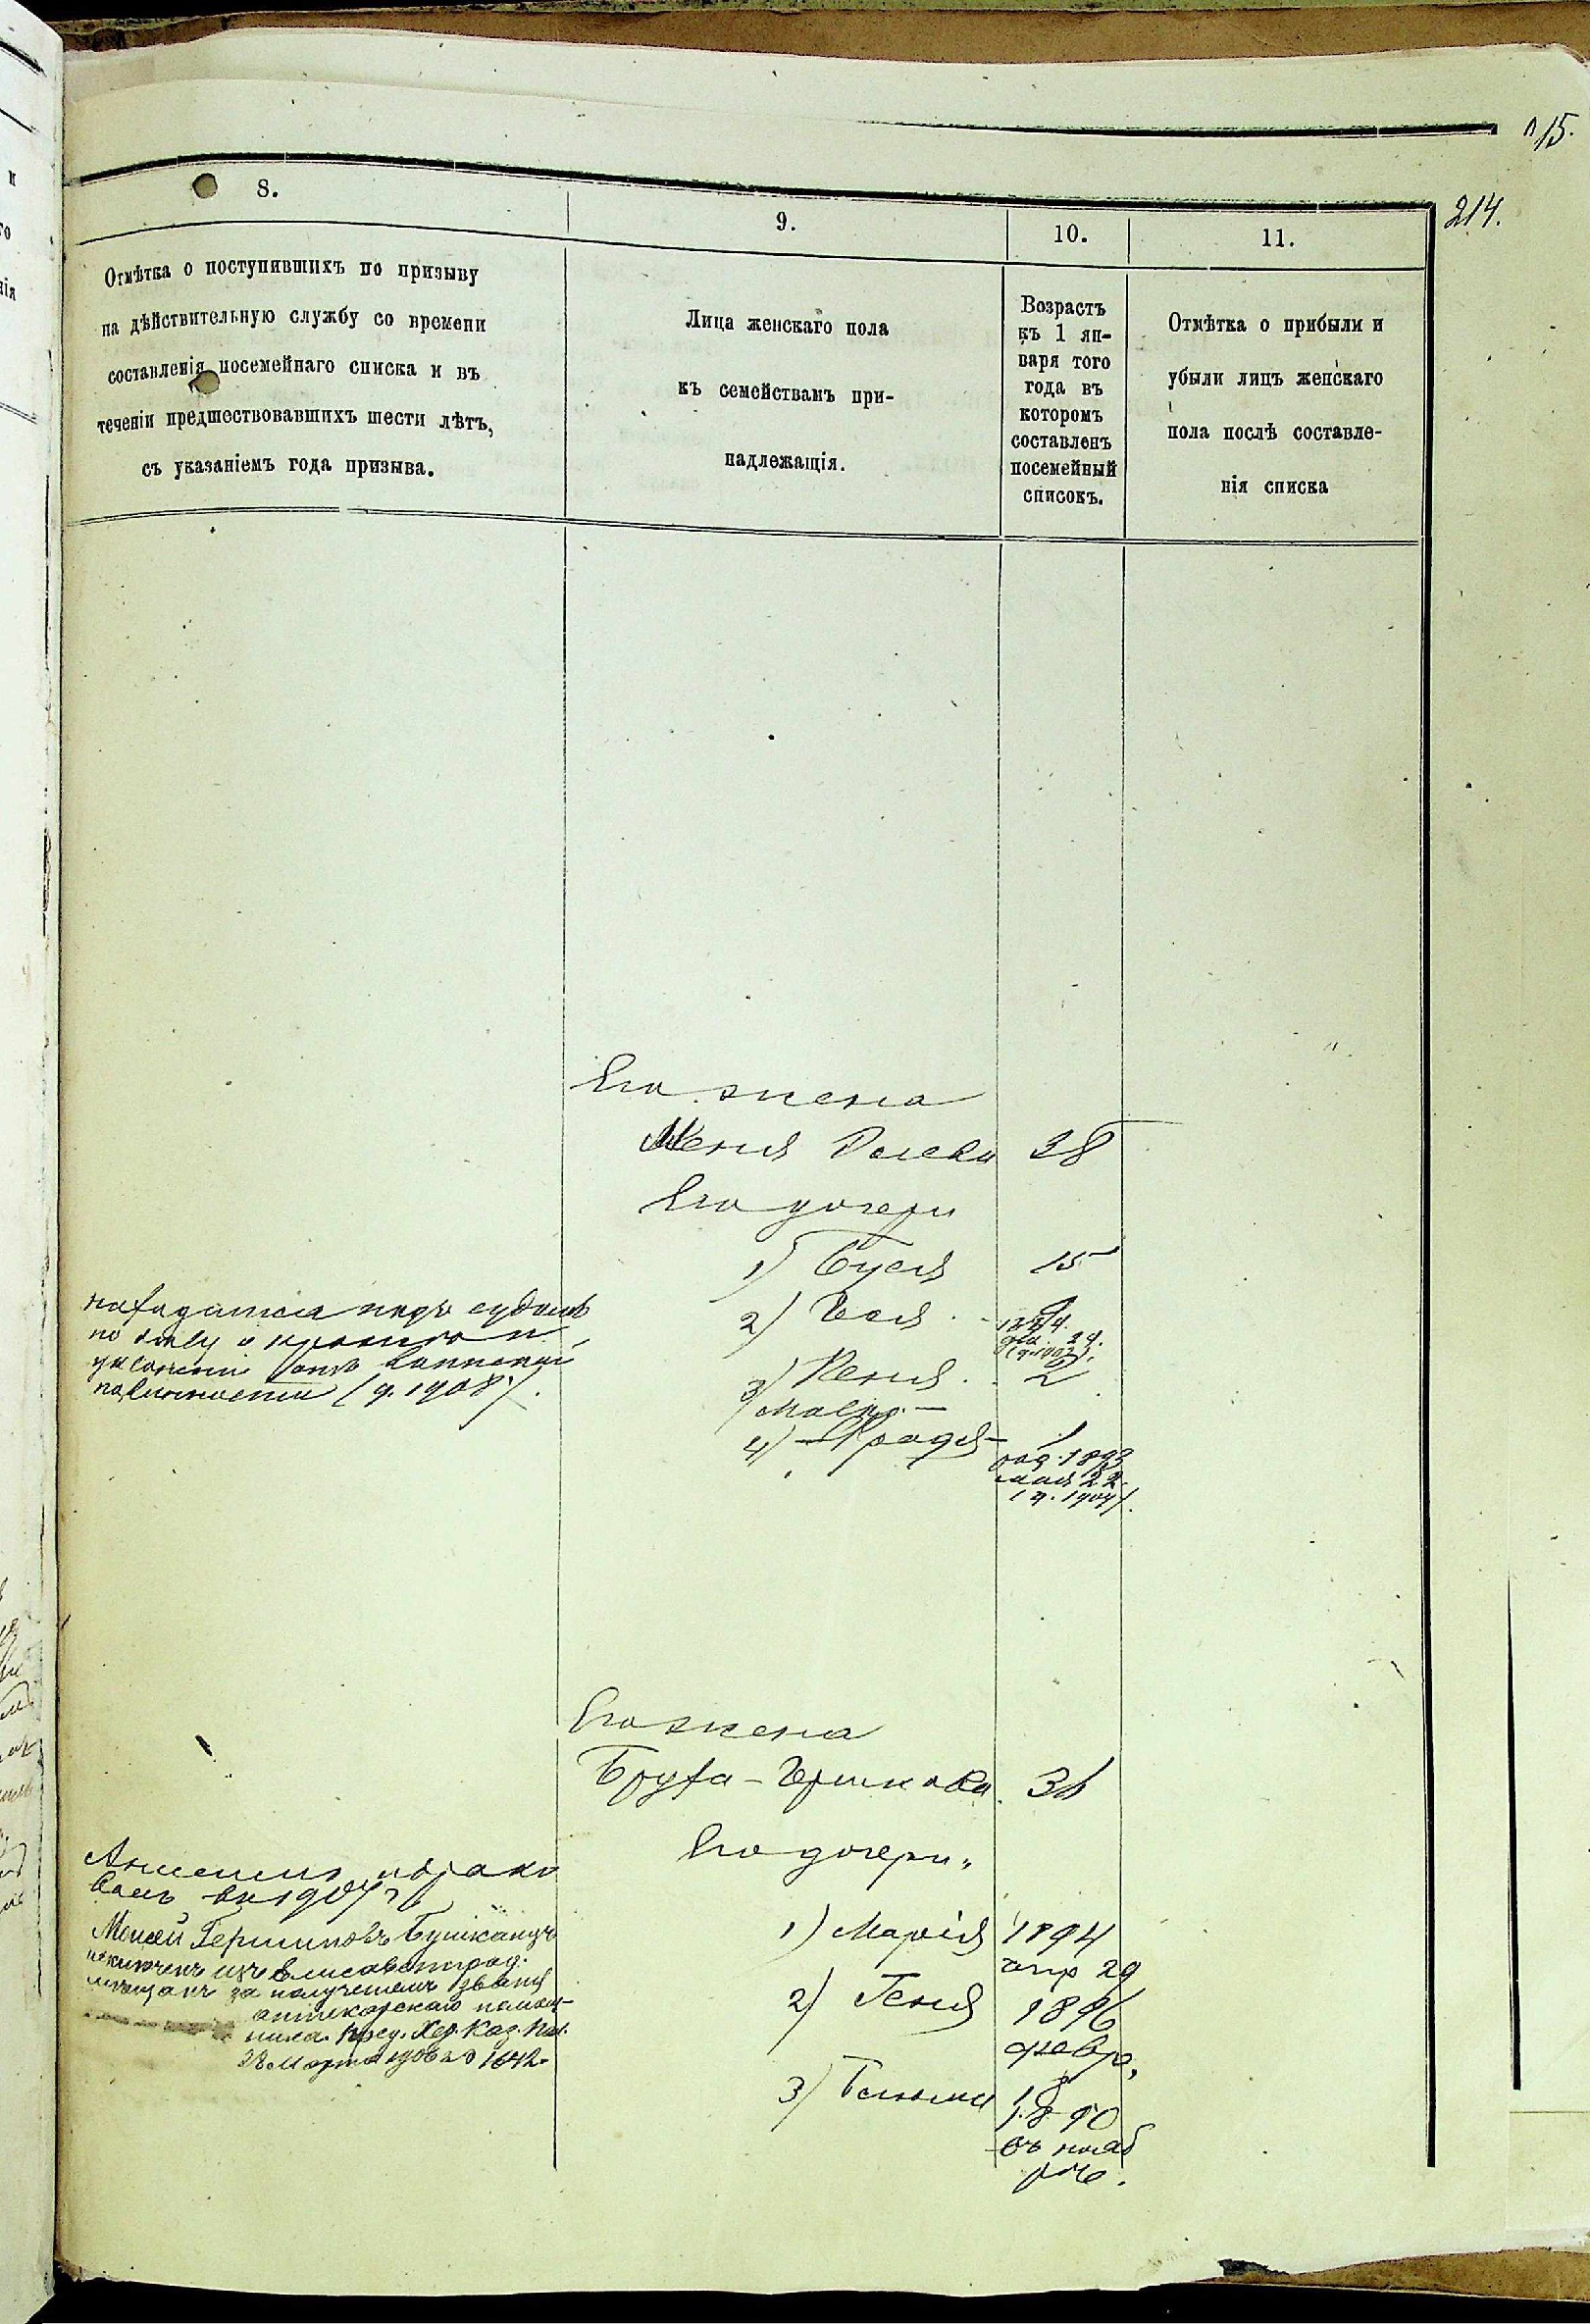 15.
214.
8.
9.
10.
11.
Отмѣтка о поступившихъ по призыву
на дѣйствительную службу со времени
составленія посемейнаго списка и въ
теченіи предшествовавшихъ шести лѣтъ,
съ указаніемъ года призыва.
Лица женскаго пола
къ семействамъ при-
надлежащія.
Возрастъ
къ 1 ян-
варя того
года въ
которомъ
составленъ
посемейный
списокъ.
Отмѣтка о прибыли и
убыли лицъ женскаго
пола послѣ составле-
нія списка
Его жена
Женя 38
Его дочери
1) Буся 15
находится подъ судомъ
по дѣлу о
уклоненіи отъ воинской
повинности (д. 1908).
2)
3) 2
4) - Фрадя -
род. 1893
мая 22.
(д. 1904).
Его жена
Бруха - Гершкова 36
Его дочери
Аншель забрако
ванъ въ 1907 г
Моисей Гершиновъ Бушканецъ
исключенъ изъ Елисаветград.
мѣщанъ за полученіемъ званія
аптекарскаго помощ-
ника. Пред. Хер. Каз. Пал.
28 Марта 1906 № 1642.
1) Марія 1894
апр 29
2) Геня 1896
февр.
3) 1890
въ нояб
рѣ.